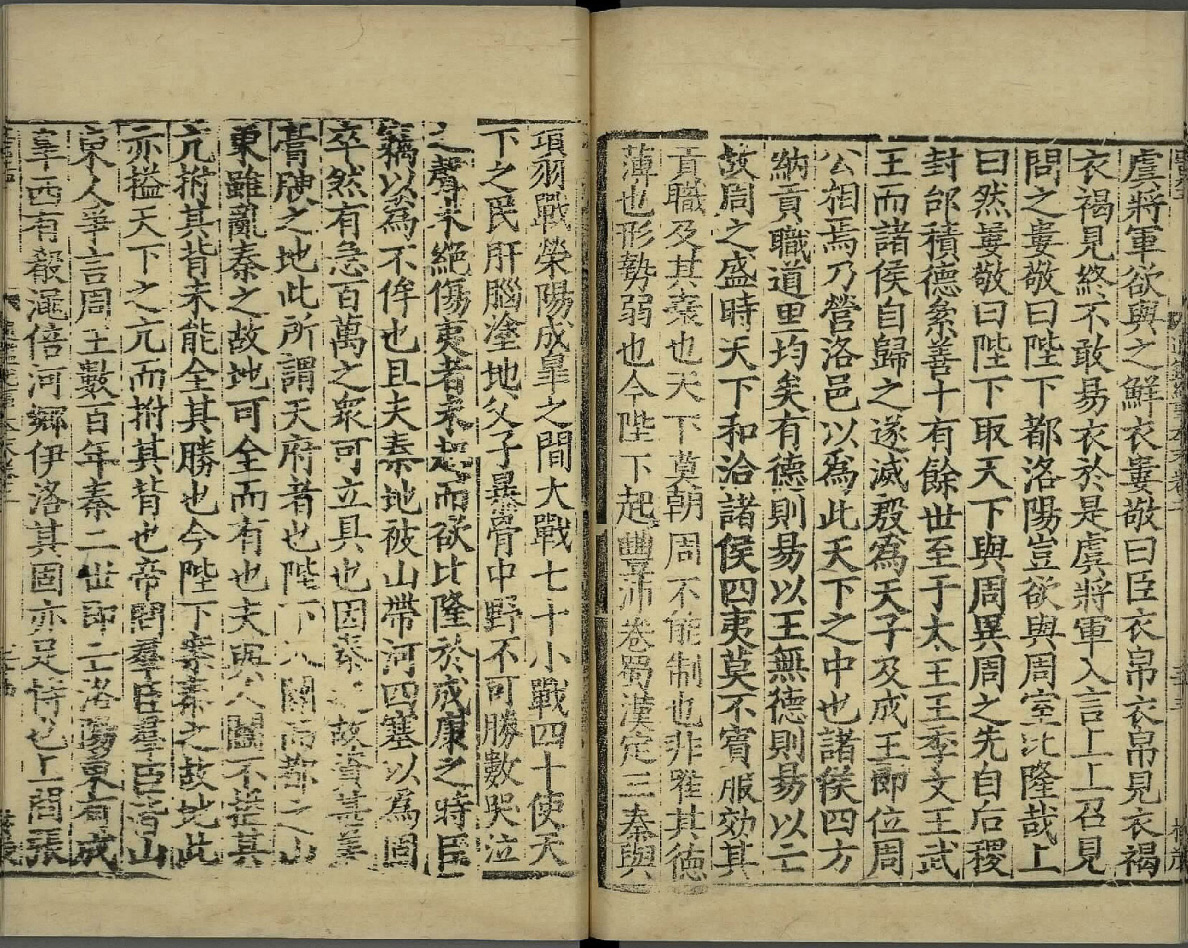 虞將軍欲與之鮮衣婁敬曰臣衣帛衣帛見衣褐
衣褐見終不敢易衣於是虞將軍入言上上召見
問之婁敬曰陛下都洛陽豈欲與周室比隆哉上
曰然婁敬曰陛下取天下與周異周之先自后稷
封邰積德絫善十有餘世至于太王王季文王武
王而諸侯自歸之遂滅殷為天子及成王即位周
公相焉乃營洛邑以為此天下之中也諸侯四方
納貢職道里均矣有德則易以王無德則易以亡
故周之盛時天下和洽諸侯四夷莫不賓服効其
貢職及其衰也天下莫朝周不能制也非唯其德
薄也形勢弱也今陛下起豐沛卷蜀漢定三秦與
項羽戰滎陽成皐之間大戰七十小戰四十使天
下之民肝腦塗地父子暴骨中野不可勝數哭泣
之聲未絕傷夷者未起而欲比隆於成康之時臣
竊以為不侔也且夫秦地被山帶河四塞以為固
卒然有急百萬之衆可立具也因秦之故資甚美
膏腴之地此所謂天府者也陛下入關而都之山
東雖亂秦之故地可全而有也夫與人鬬不搤其
亢拊其背未能全其勝也今陛下案秦之故地此
亦搤天下之亢而拊其背也帝問羣臣羣臣皆山
東人爭言周王數百年秦二世即亡洛陽東有成
皐西有殽澠倍河鄉伊洛其固亦足恃也上問張